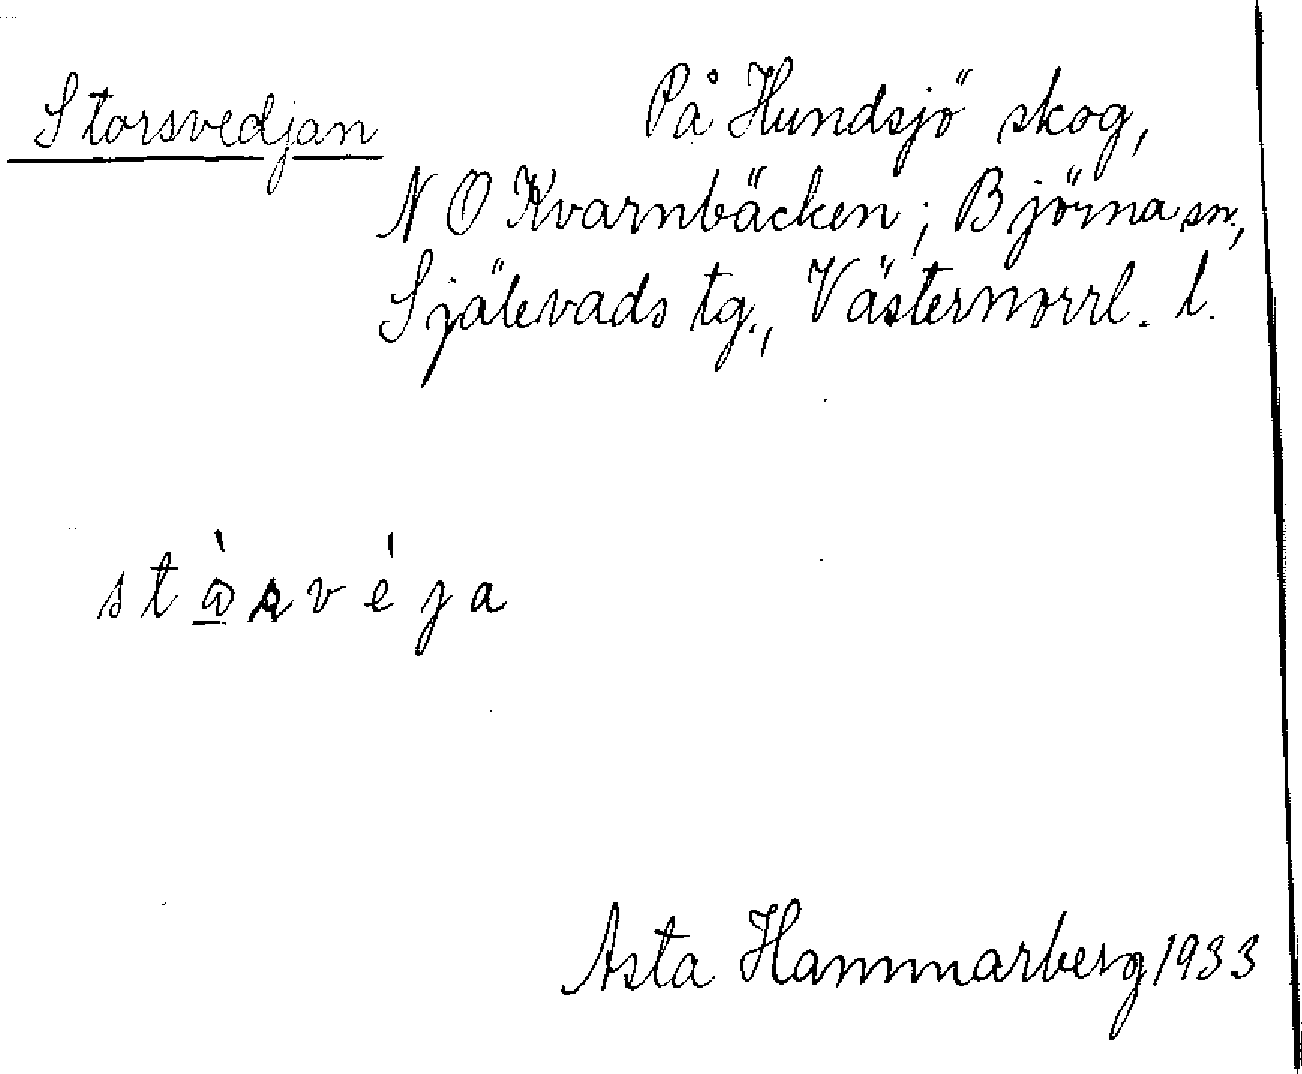 Storsvedjan På Hundsjö skog,
N O Kvarnbäcken; Björna sn.,
Själevads tg., Västernorrl. l.
Asta Hammarberg 1933